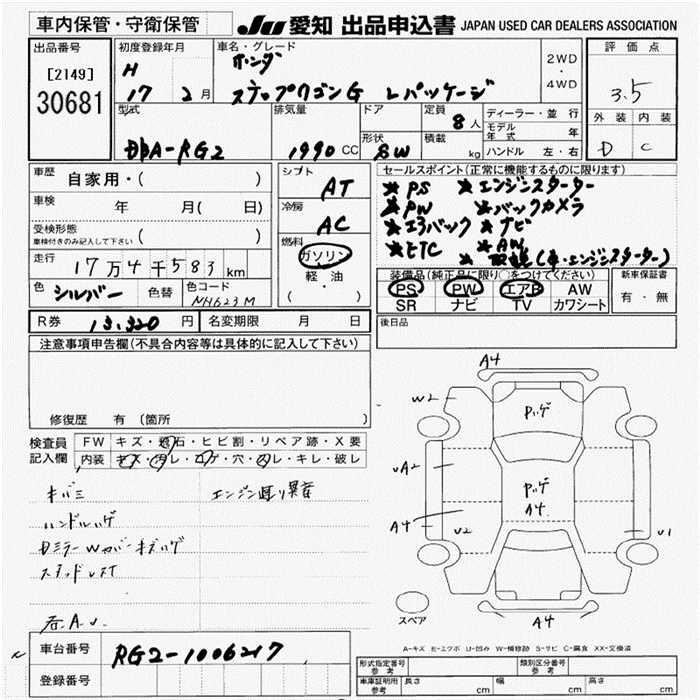 車内保管・守衛保管
JU 愛知 出品申込書 JAPAN USED CAR DEALERS ASSOCIATION
出品番号
[2149]
30681
初度登録年月
H
17 2月
車名・グレード
ホンダ
ステップワゴンG Lパッケージ
2WD
・
4WD
評価点
3.5
外装 内装
D C
型式
DBA-RG2
排気量
1990 CC
ドア
形状
SW
定員
8人
積載
kg
ディーラー・並行
モデル年式 年
ハンドル 左・右
車歴
自家用・( )
車検
年 月( 日)
受検形態
車検付きのみ記入して下さい ( )
走行
17万4千583km
色
シルバー
色替
色コード
NH623M
シフト
AT
冷房
AC
燃料
ガソリン
軽・油
( )
セールスポイント(正常に機能するものに限ります)
★PS ★エンジンスターター
★PW ★バックカメラ
★エアバック ★ナビ
★ETC ★AW
(キ・エンジンスターター)
装備品(純正品に限り○をつけてください)
PS PW エアB AW
SR ナビ TV カワシート
新車保証書
有・無
R券 13,320 円 名変期限 月 日
後日品
注意事項申告欄(不具合内容等は具体的に記入して下さい)
修復歴 有(箇所 )
検査員
記入欄
FW キズ・飛石・ヒビ割・リペア跡・X要
内装 キズ・汚レ・コゲ・穴・スレ・キレ・破レ
キバミ
エンジン廻り異音
ハンドルハゲ
Dミラーウカバーキズハゲ
A4
W2
UA2
A4
U2
A4
U1
A4
スペア
A-キズ E-エクボ U-凹み W-補修跡 S-サビ C-腐食 XX-交換済
車台番号
RG2-1006217
登録番号
形式指定番号
参考
類別区分番号
参考
車庫証明用
参考
長さ cm
幅 cm
高さ cm